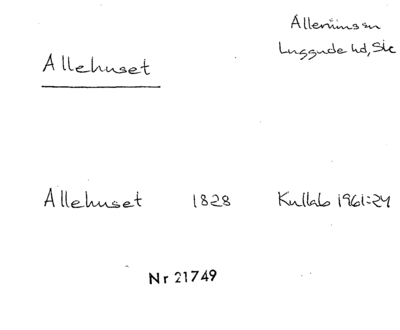 Allerums sn
Luggude hd, Sk
Allehuset
Allehuset 1828 Kullab 1961:24
Nr 21749